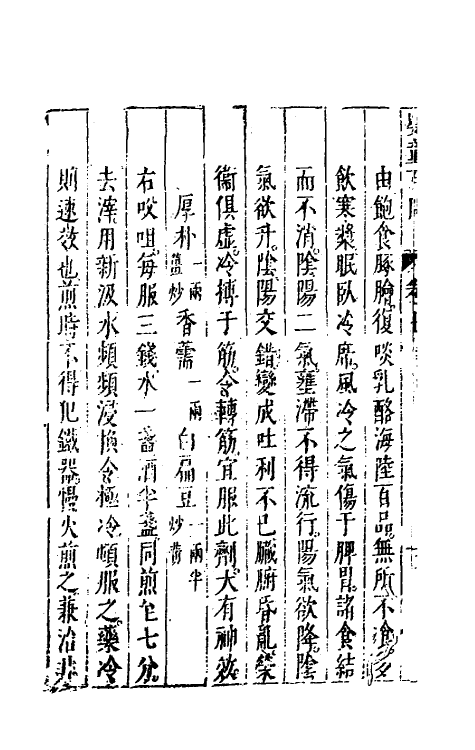 由飽食豚膾復啖乳酪海陸百品無所不飡多
飲寒漿眠臥冷席風冷之氣傷于脾胃諸食結
而不消陰陽二氣壅滯不得流行陽氣欲降陰
氣欲升陰陽交錯變成吐利不已臟腑昏亂榮
衞俱虛冷搏于筋令轉筋宜服此劑大有神效
厚朴一兩薑炒香薷一兩白扁豆一兩半炒黄
右㕮咀每服三錢水一盞酒半盞同煎七分
去滓用新汲水頻頻浸換令極冷頓服之藥冷
則速效也煎時不得犯鐵器慢火煎之兼治非